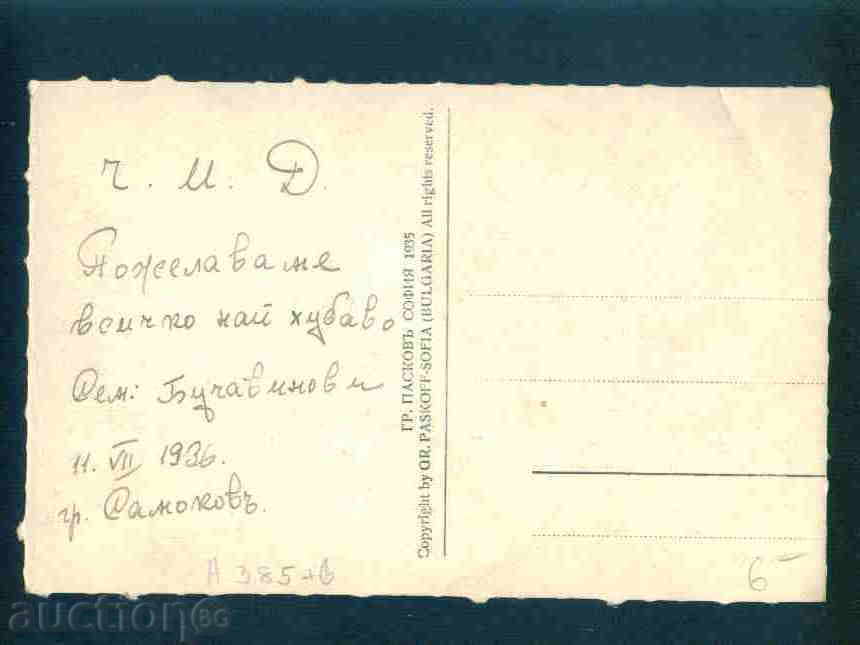 Ч. И. Д.
Пожелаваме
всичко най хубаво
Сем: Бучавинови
11. VII 1936.
гр. Самоковъ.
А 385+в
ГР. ПАСКОВЪ СОФИЯ 1935
Copyright by GR. PASKOFF-SOFIA (BULGARIA) All rights reserved.
6-
auctionBG